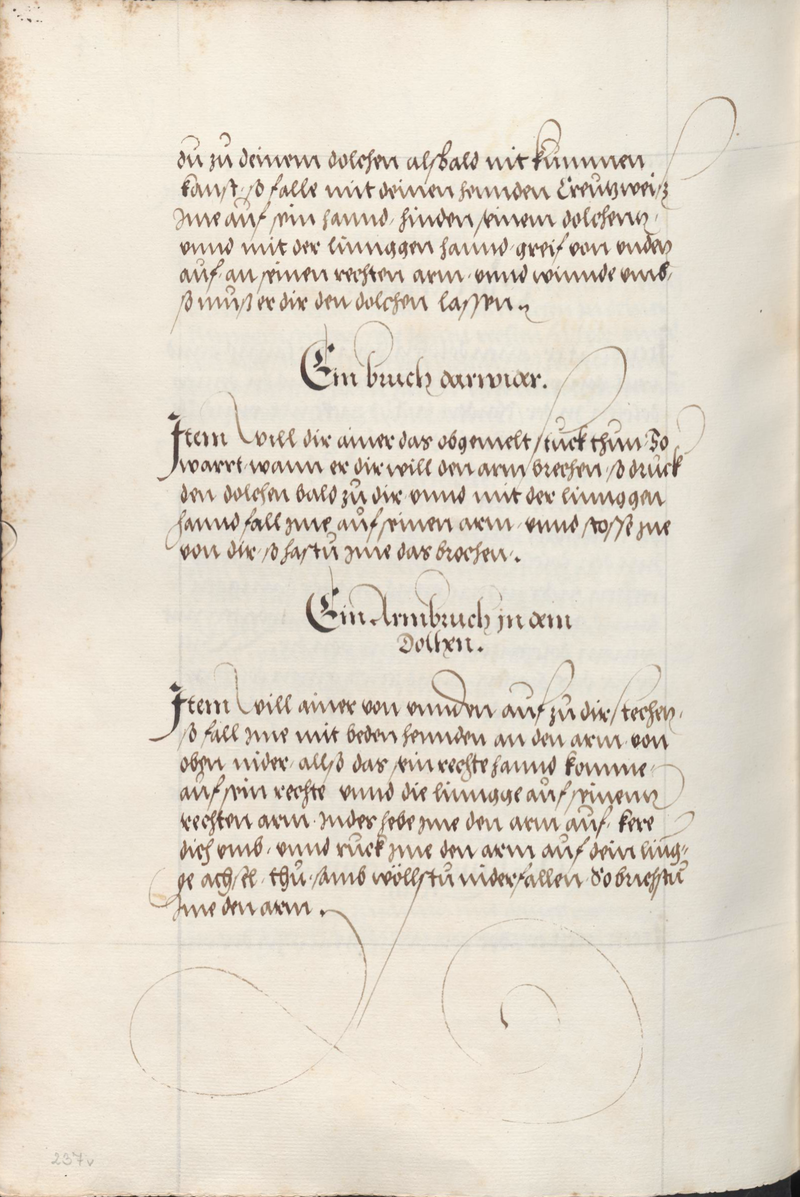 du zu deinem dolchen alsbald nit kummen
kanst, so falle mit deinen hennden Creutzweiß
Jme auf sein hannd, hinden seinem dolchenn,
vnnd mit der linnggen hannd, greif von vnden
auf an seinen rechten arm, vnnd winnde vmb,
so muß er dir den dolchen lassen.
Ein bruch darwider.
Jtem will dir ainer das obgemelt stuck thun, So
warrt, wann er dir will den arm brechen, so druck
den dolchen bald zu dir, vnnd mit der linnggen
hannd fall Jme auf seinen arm, vnnd stosse Jne
von dir, so hastu Jme das brochen.
Ein Armbruch in dem
Dolchen.
Jtem will ainer von vnnden auf zu dir stechen,
so fall Jme mit beden hennden an den arm, von
oben nider, allso das sein rechte hannd komme
auf sein rechte vnnd die linngge auf seinenn
rechten arm, Jndes hebe Jme den arm auf, kere
dich vmb, vnnd ruck Jme den arm auf dein ling-
ge achsel, thu, samb wöllstu niderfallen So brichstu
Jme den arm.
237v